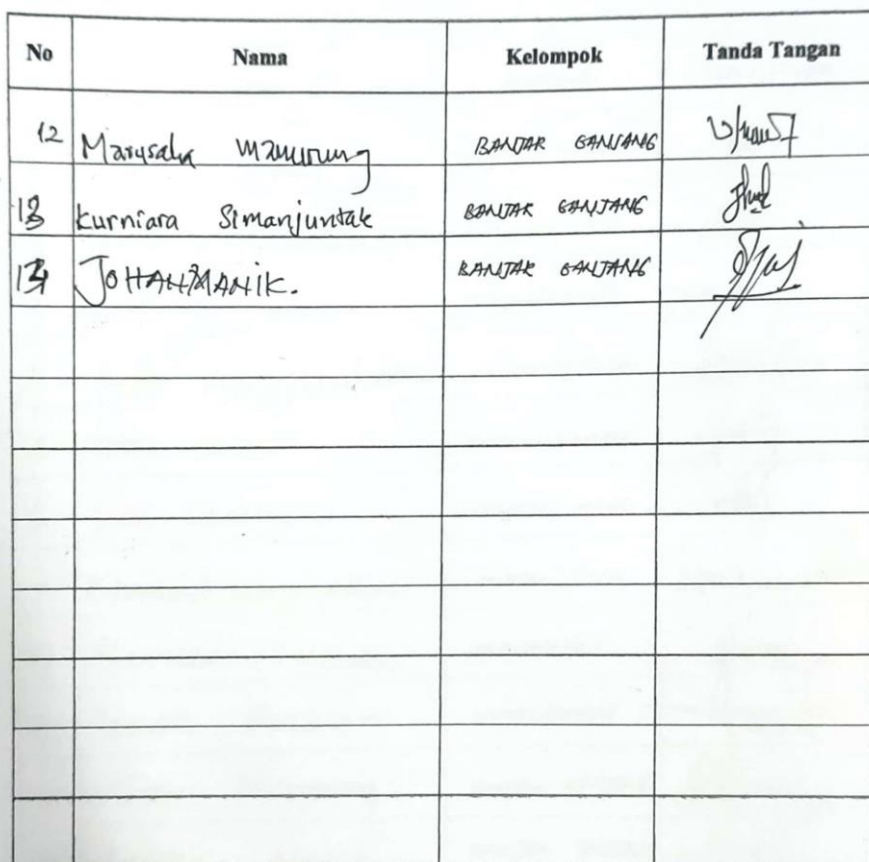 No Nama Kelompok Tanda Tangan
12 Marusaha Manurung BANJAR GANJANG
13 Kurniara Simanjuntak BANJAR GANJANG
14 JOHAN MANIK. BANJAR GANJANG